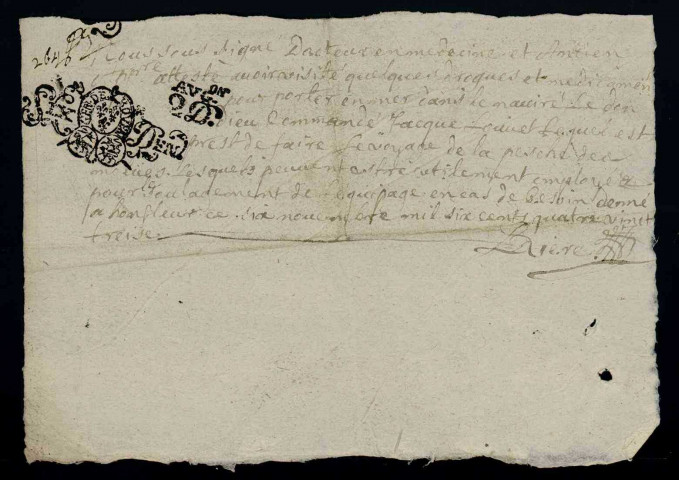 Nous sous signé Docteur en medecine et Antien
atteste avoir visité quelques drogues et medicamen
AV. ON
2 D.
DEN
pour porter en mer dans le navire le bon
dieu Commandé Jacque Louvet lequel est
prest de faire le voyage de la pesche des
molues. Lesquels peuvent estre utilement employé
pour soulagement de l'equipage en cas de besoin donné
a honfleur ce six novembre mil six cents quatre vingt
treise